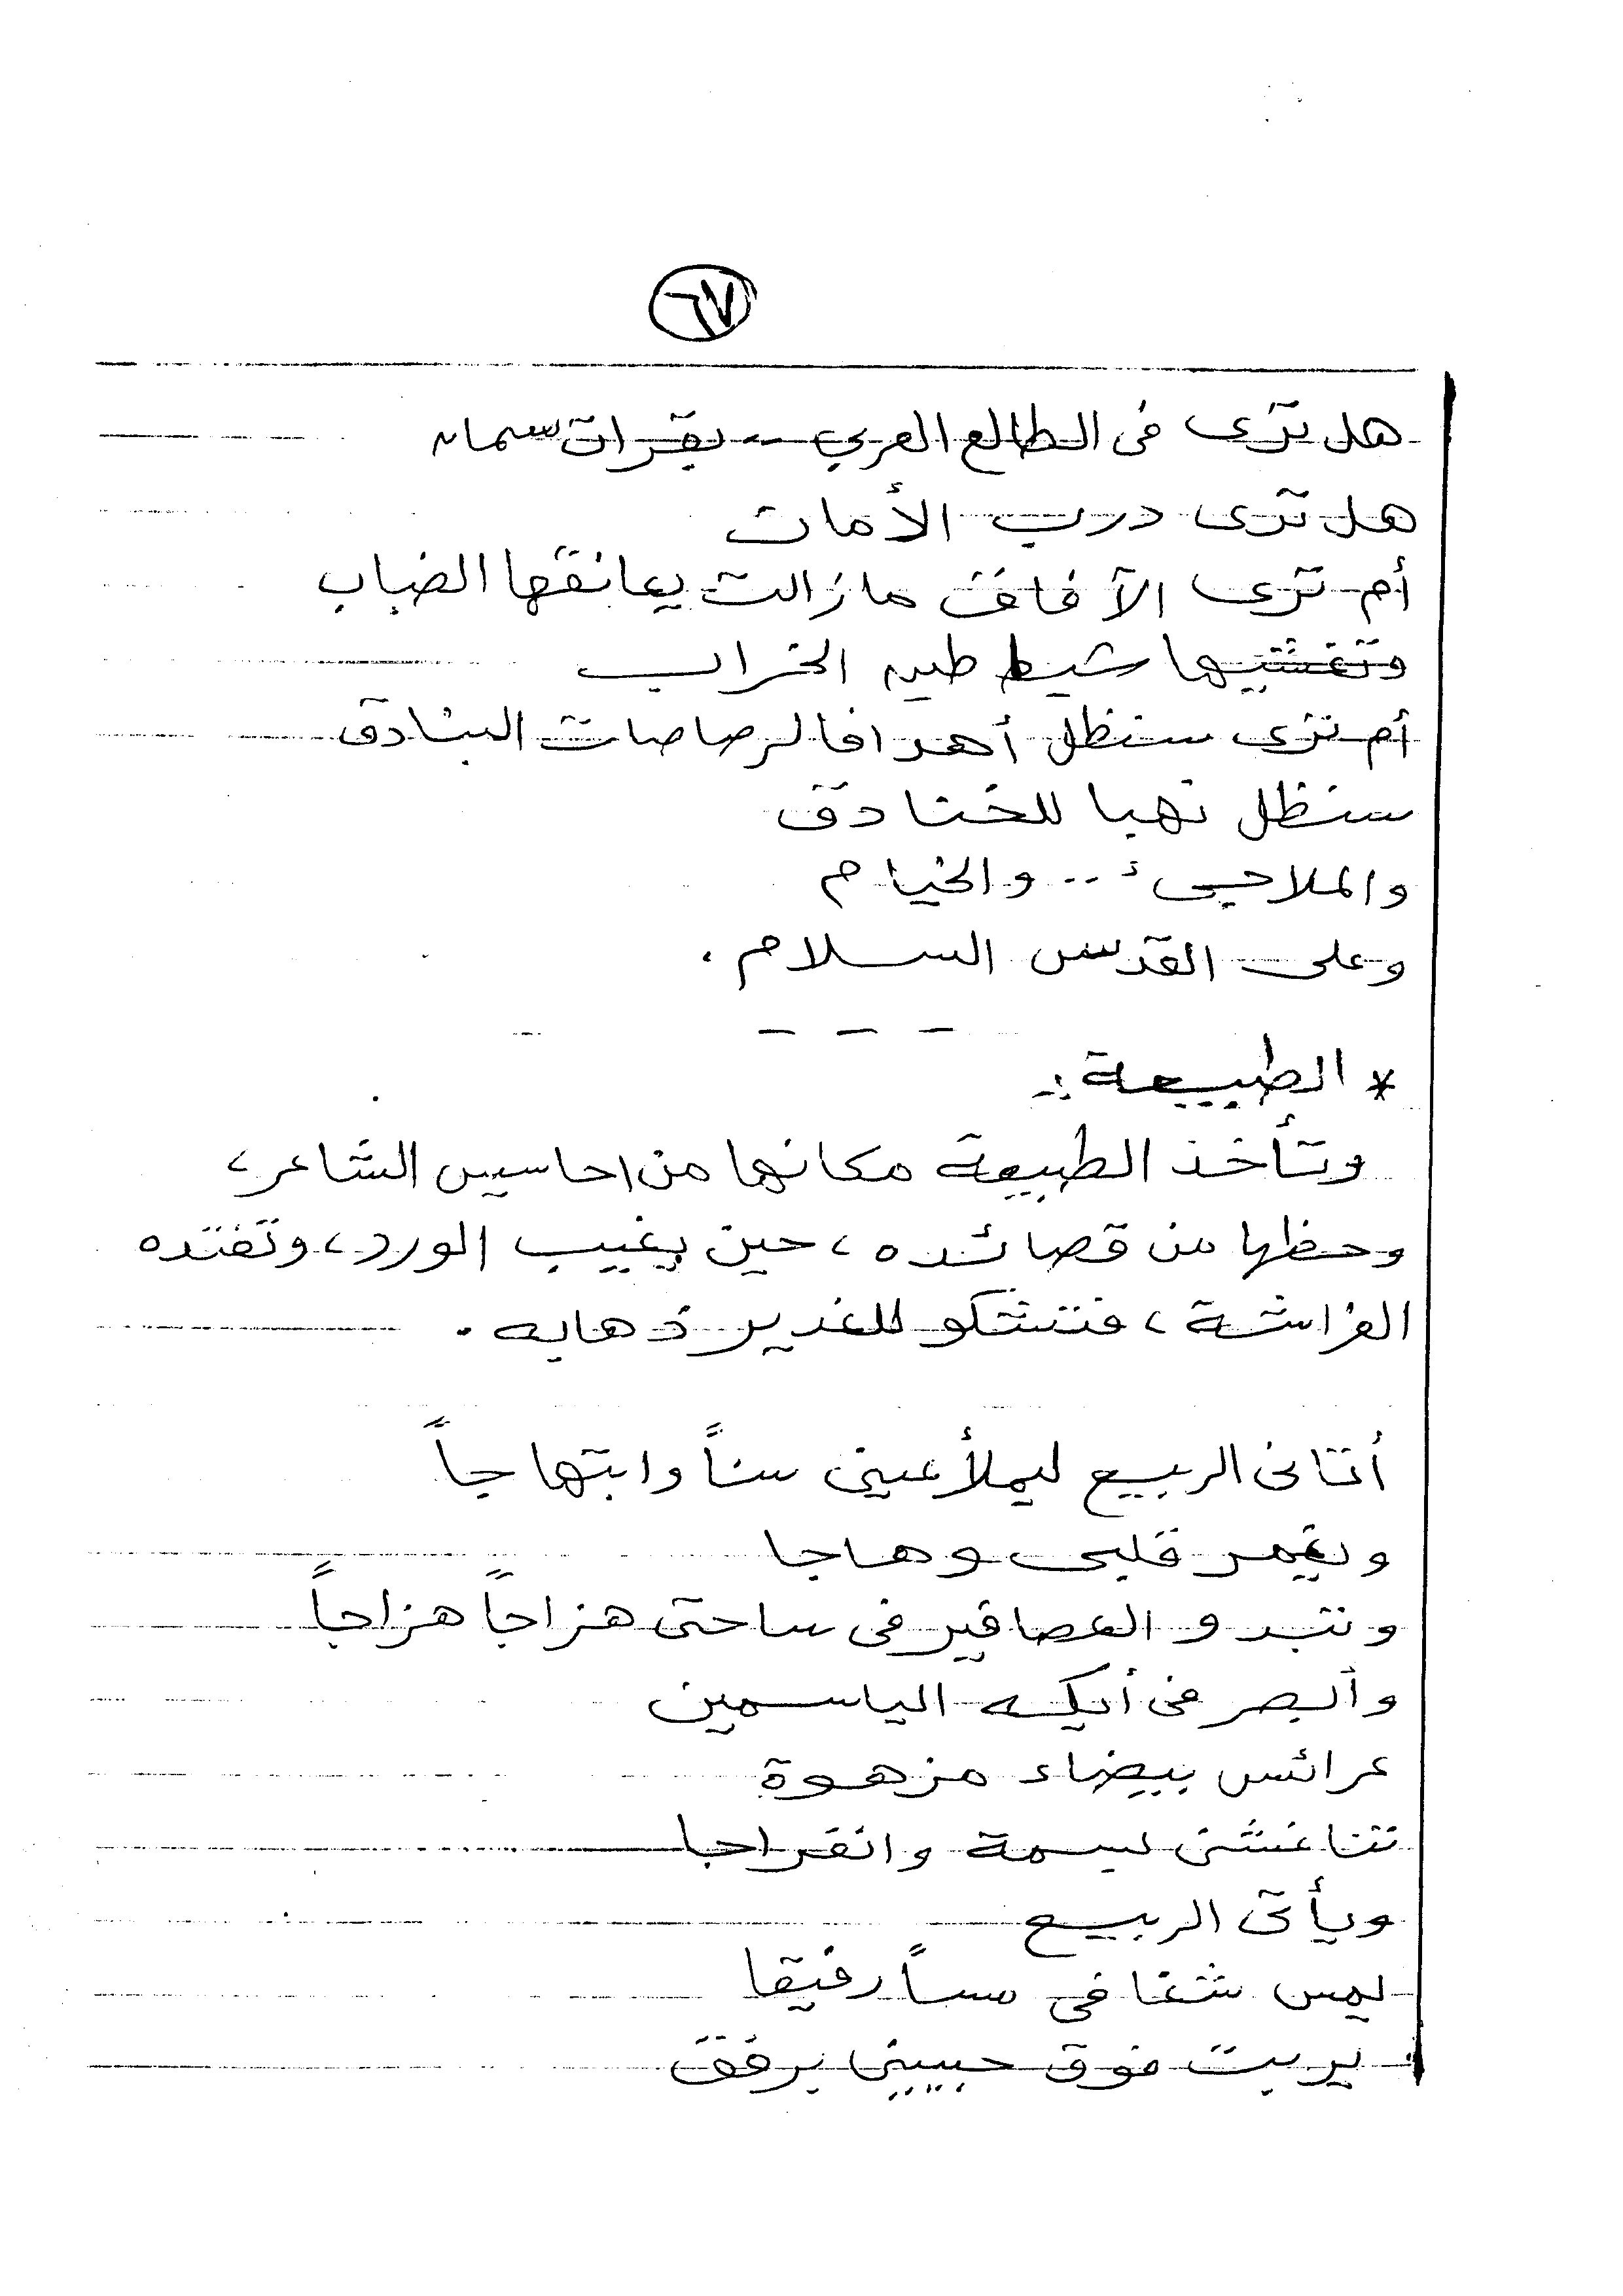 ٦٧
هل ترى فى الطالع العربي .. بقرات سمان
هل ترى درب الأمان
أم ترى الآفاق مازالت يعانقها الضباب
وتغشيها شياطين الخراب
أم ترى سنظل أهدافا لرصاصات البنادق
سنظل نهبا للخنادق
والملاجىء .. والخيام
وعلى القدس السلام .
* الطبيعة :-
وتأخذ الطبيعة مكانها من احاسيس الشاعر ،
وحظها من قصائده ، حين يغيب الورد ، وتفتده
الفراشة ، فتشكو للغدير ذهابه .
أتانى الربيع ليملأ عينى سناً وابتهاجاً
ويغمر قلبى وهاجا
وتبدو العصافير فى ساحتى هزاجاً هزاجاً
وأبصر فى أيكه الياسمين
عرائس بيضاء مزهوة
تناغشنى بسمة وانفراجا
ويأتى الربيع
ليمس شغافى مساً رفيقا
يربت فوق جبينى برفق